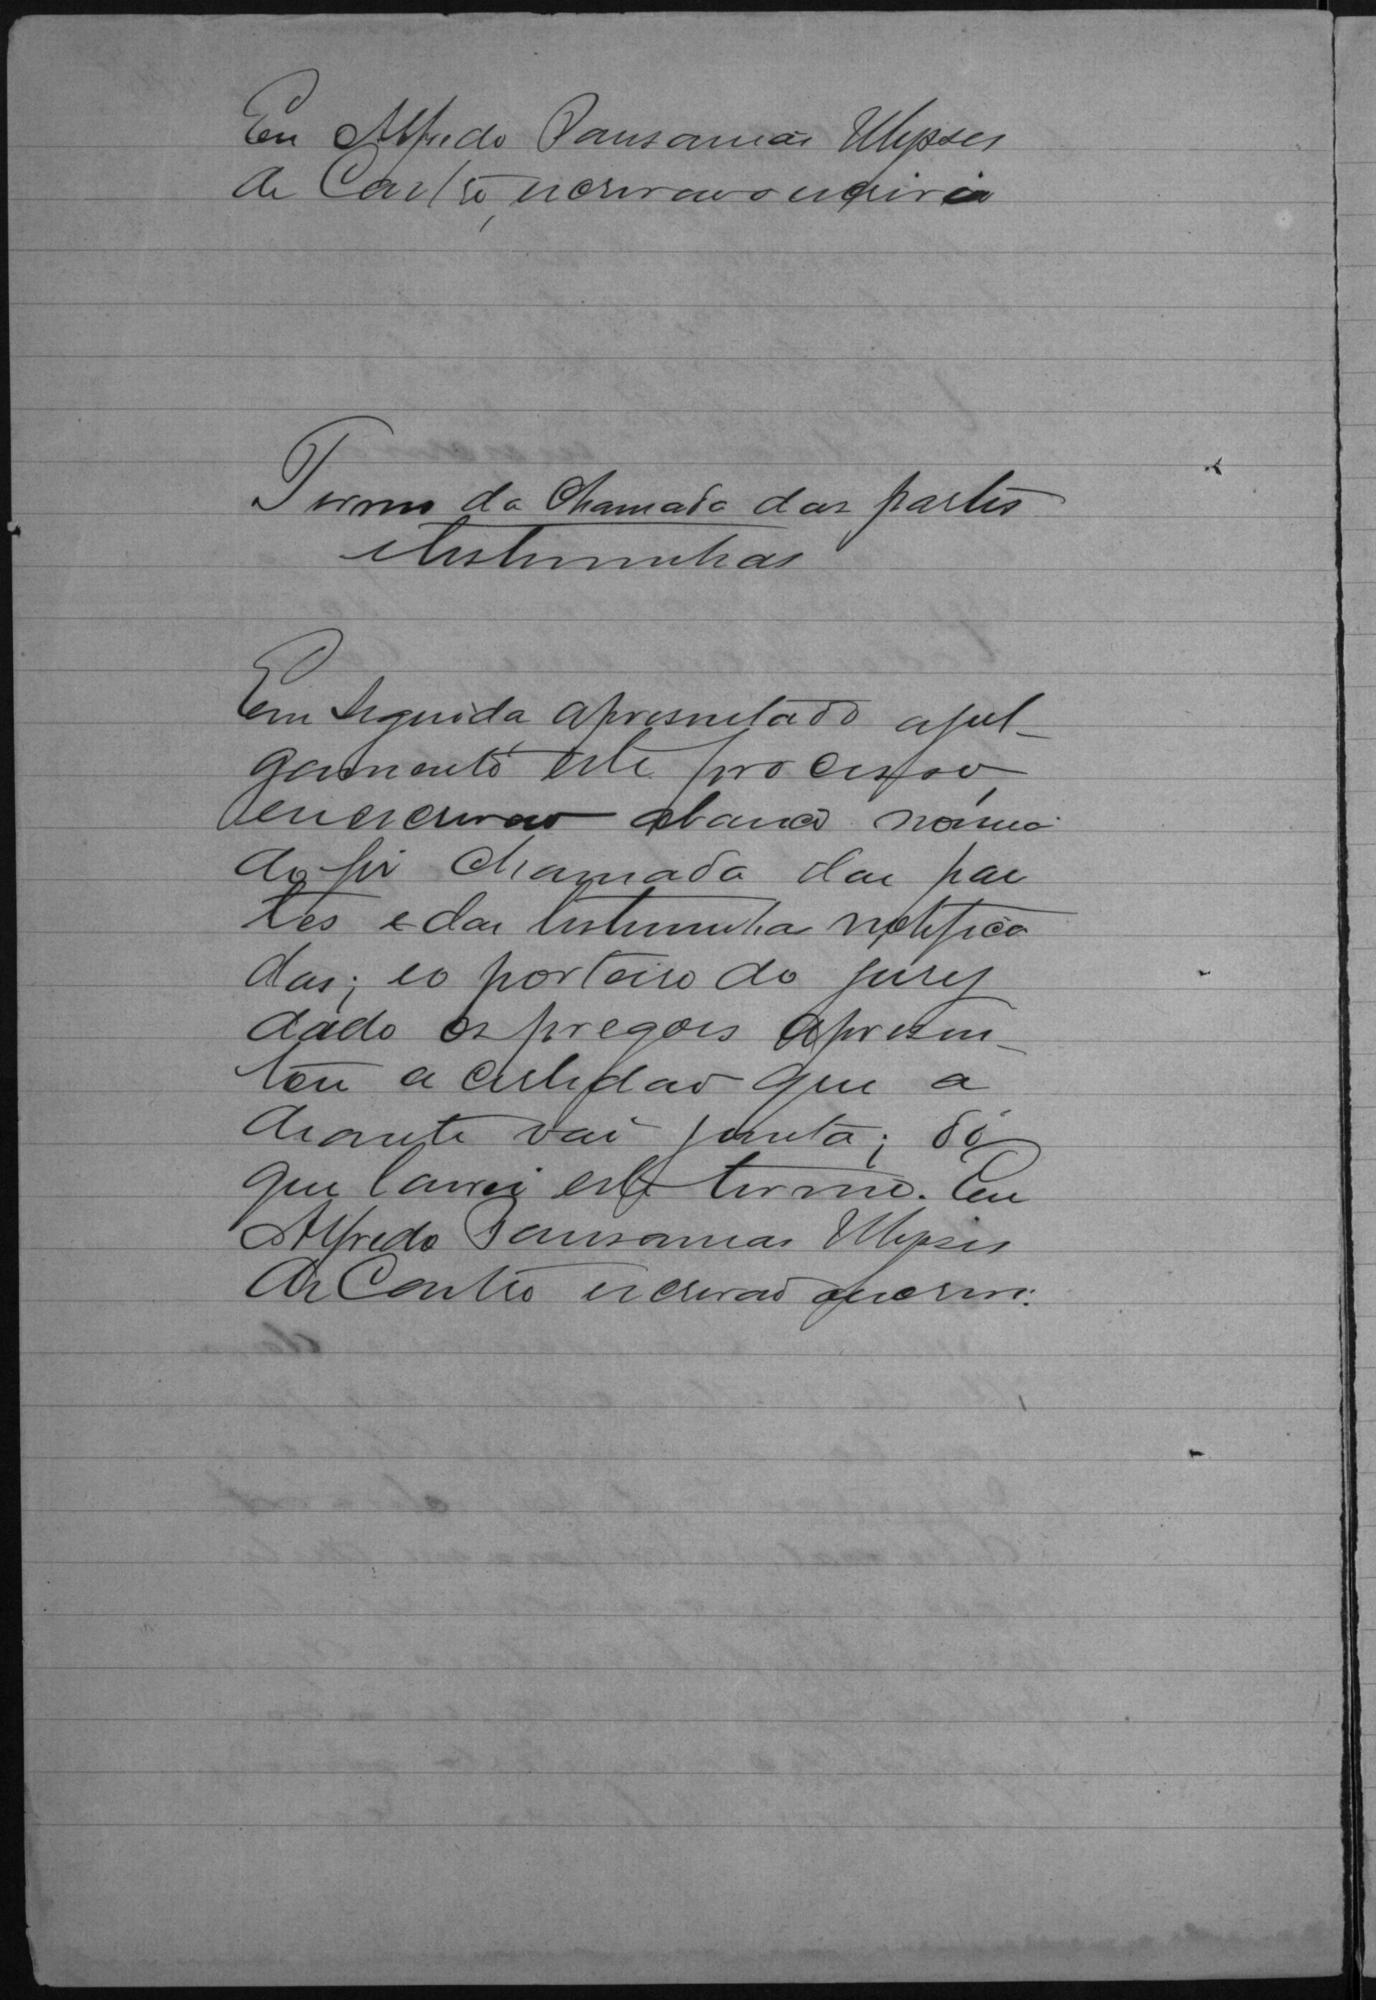 Eu Alfredo Pausanias Ulysses
de Castro, escrivão escrivia
Termo da chamada das partes
e testemunhas
Em seguida, apresentado a jul-
gamento este processo,
eu escrivão abaixo nomea
do fiz chamada das par
tes e das testemunhas notifica
das; e o porteiro do jury
dado os pregões apresen-
tou a certidão que a
diante vai junta; do
que lavrei este termo. Eu
Alfredo Pausanias Ulysses
de Castro escrivão que escrevi.